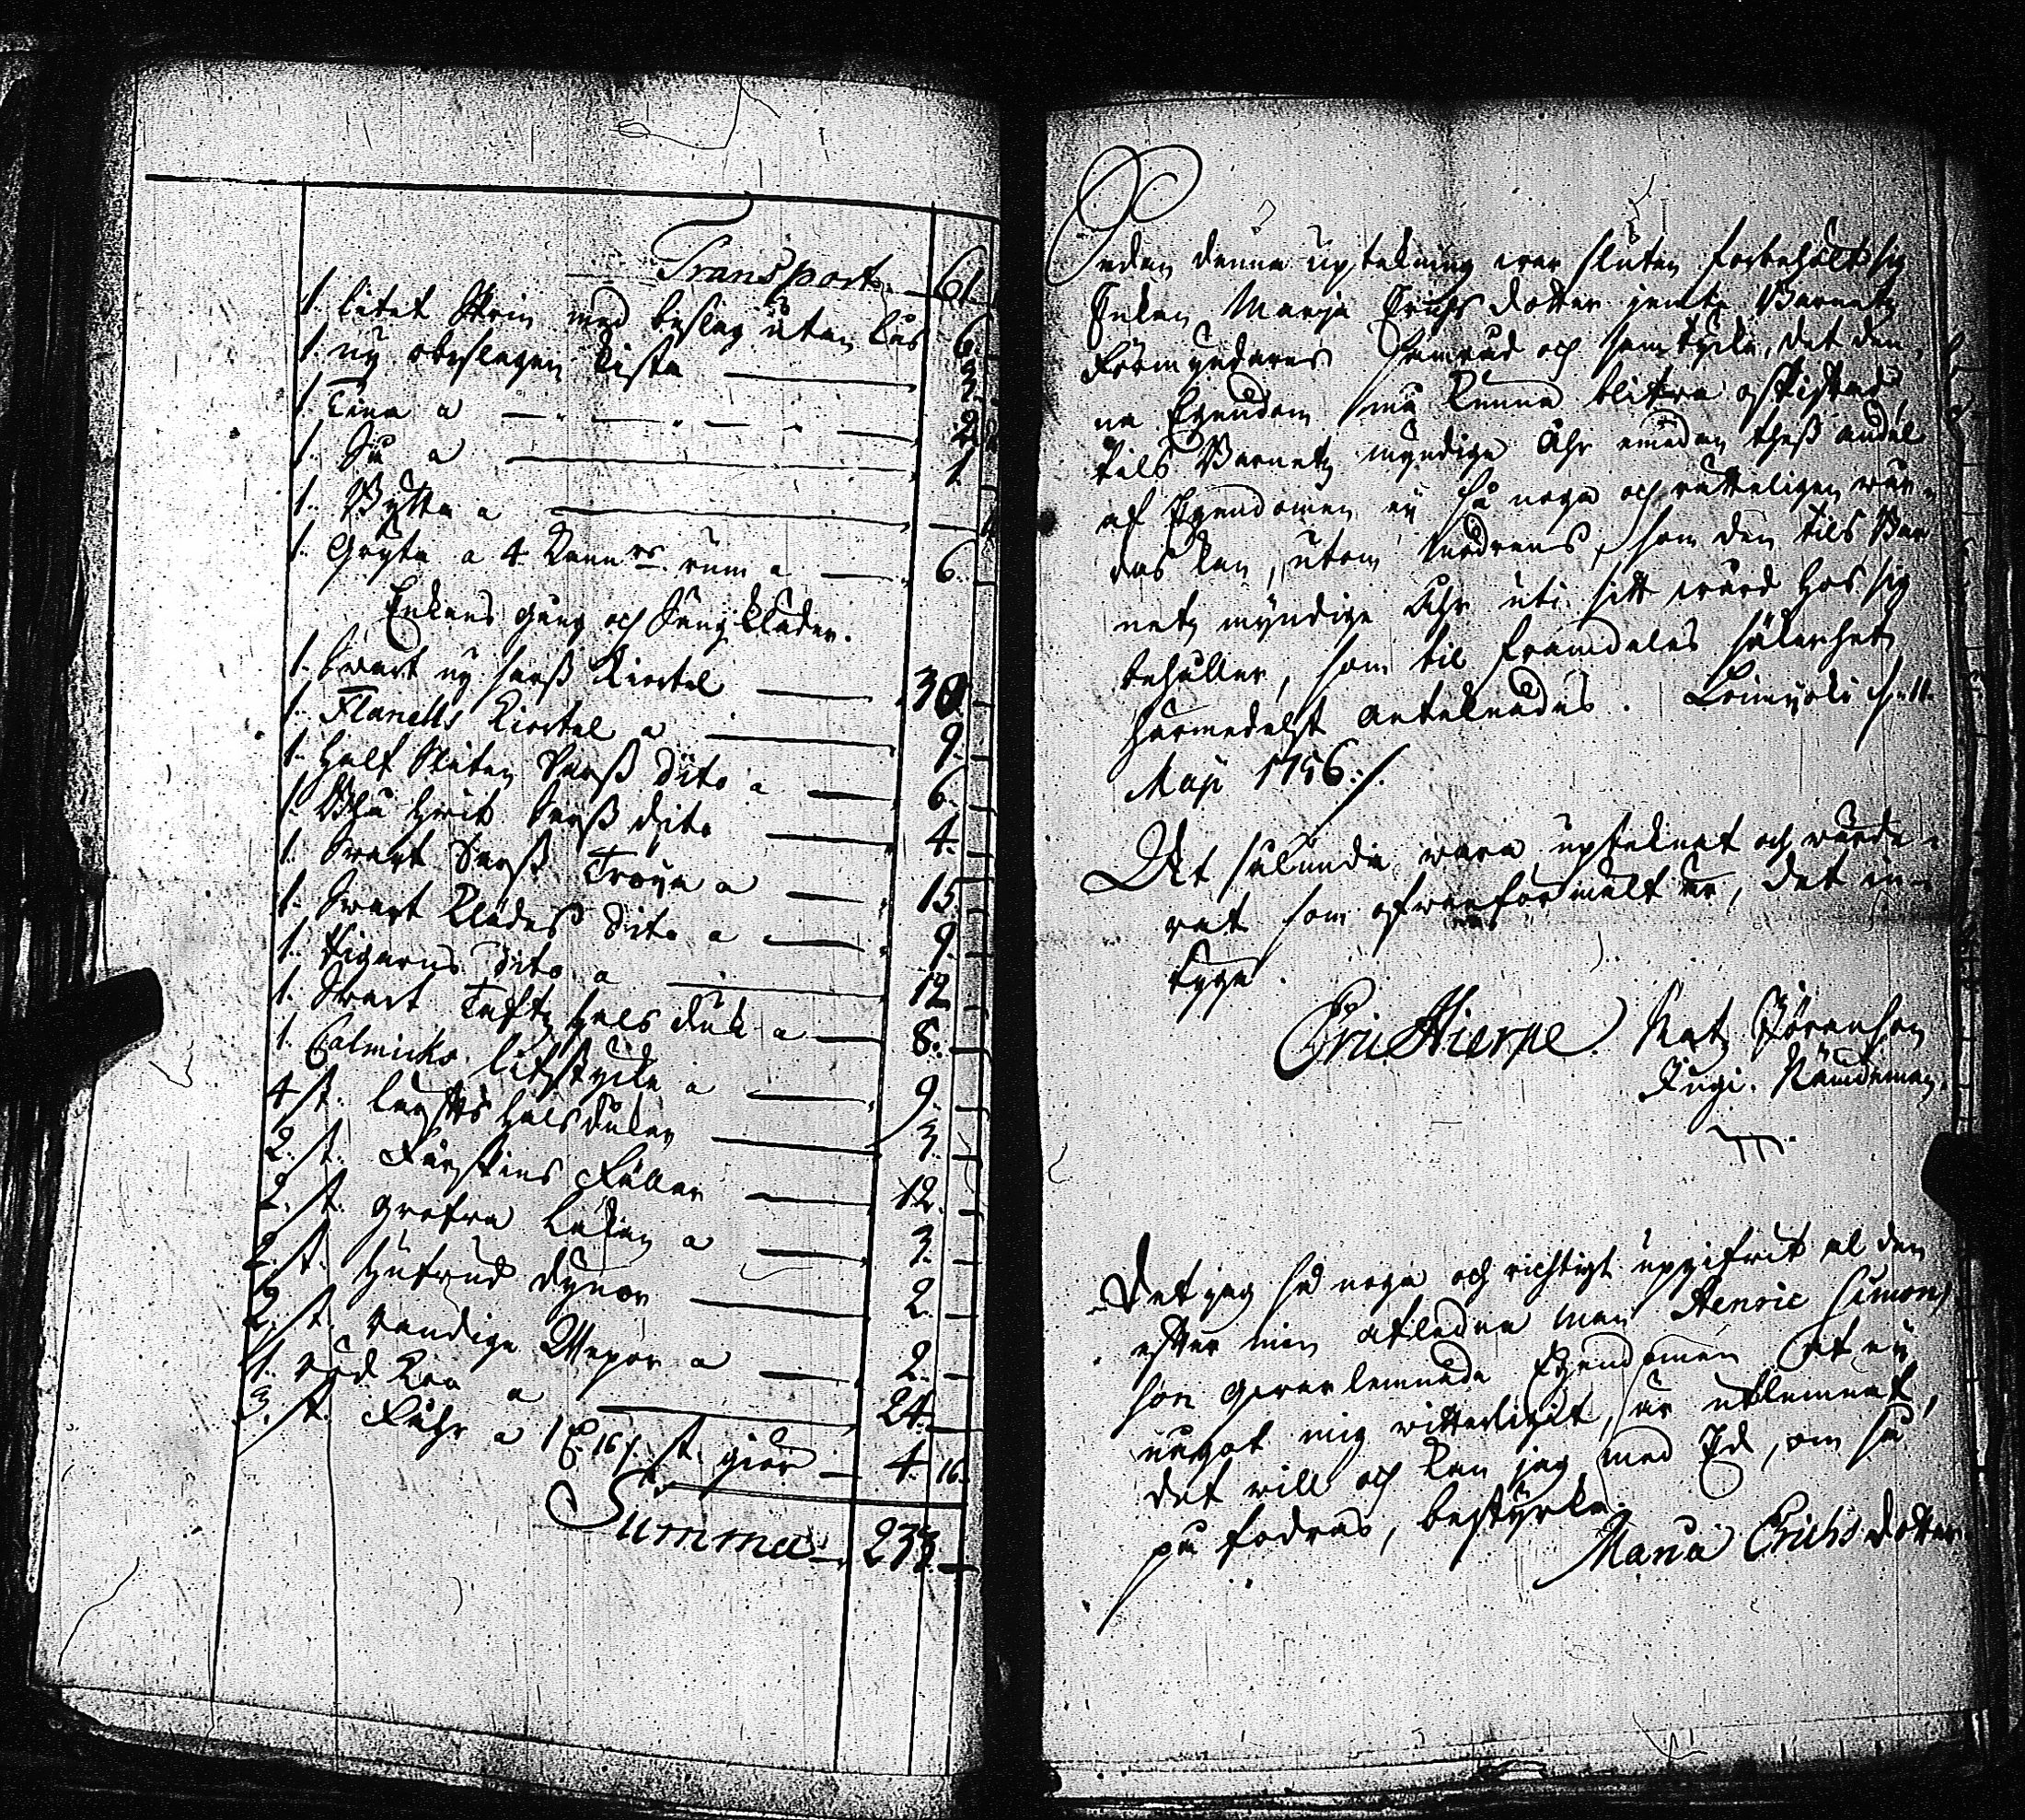 Transport 61.
1. litet Skrin med beslag utan Lås 6.
1. ny obeslagen Kista 3.
1 Tina a 2.
1. Så a 1.
1. Bytta a
1. Gryta a 4 Kann rs rum a 6.
Enkans gång och Sängkläder.
1. Svart ny sarß Kiortel 30
1. Flanells Kiortel a 9.
1. half Sliten Sarß dito a 6.
1. Blå hvit Sarß dito 4.
1. Svart Sarß Tröija a 15.
1. Svart Klädes dito a 9.
1. dito a 12
1. Svart Tafts halsduk a 8.
1. Calmicks lifstycke a 9.
4 st. halsdukar 3.
2. st. Fårskins Fällar 12.
2. st. grofva Lakan a 3.
2. st. hufvud dynor 2.
2. st. randige Wepor a 2.
1. röd Koo a 24.
3. st. Fåhr a 1 16 st. giör 4. 16.
Summa 233.
Sedan denna uptekning var sluten förbehölt sig
Enkan Maria Erichs dotter jemte Barnets
Förmyndares Samråd och samtycke, det den-
na Egendom må kunna blifva oskiftad
tils Barnets myndige Åhr emedan theß andel
af Egendomen ej så noga och rätteligen vår-
das kan, utom Modrens, som den tils Bar-
nets myndige Åhr uti sitt vård hos sig
behåller, som til framdeles säkerhet
härmedelst anteknades. Loimijoki d. 11.
Maji 1756.
At sålunda vara upteknat och värde-
rat som ofvanförmält är, det in-
tyga.
Eric Hierpe. Mats Jöransson
Fugi. Nämdeman.
Det jag så noga och richtigt upgifvit al den
efter min afledna man Henric Simons
son qvarlemnade Egendomen at ej
något mig vitterligit, är utlemnat,
det vill och kan jag med Ed, om så
på fodras, bestyrka.
Maria Erichs dotter